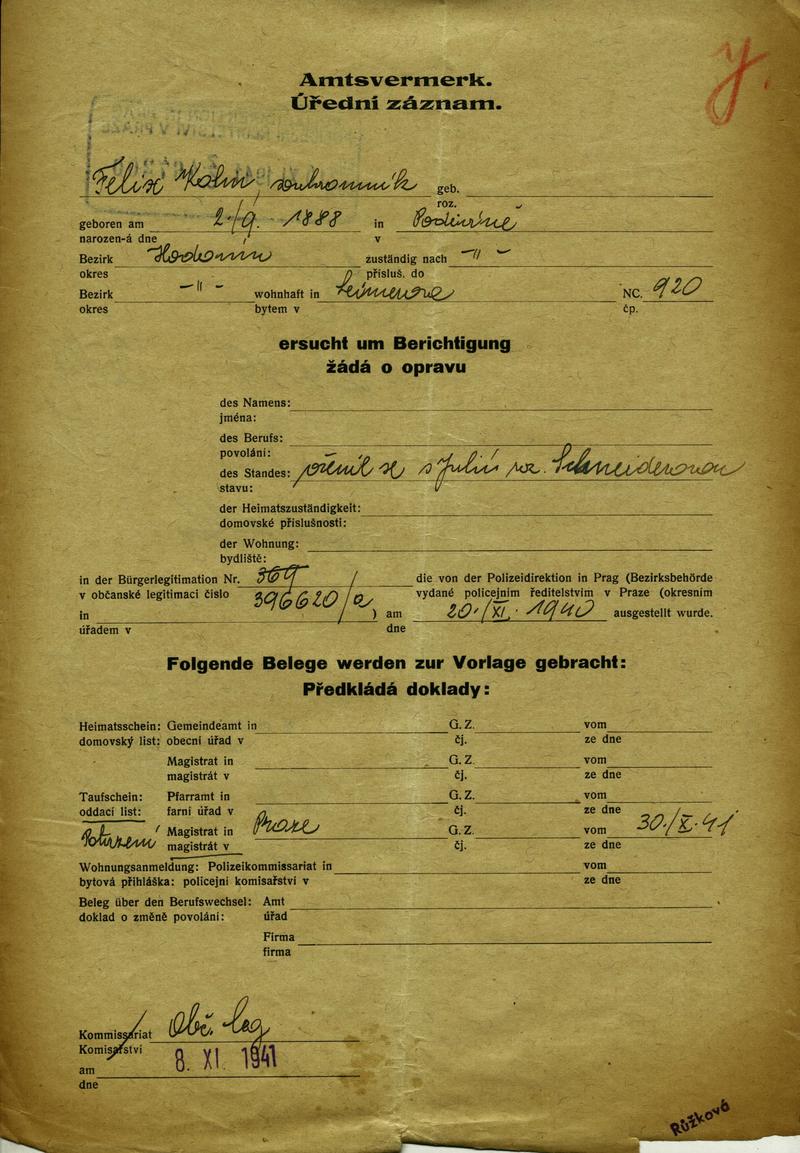 Amtsvermerk.
Úřední záznam.
Felix Kohn, soukromník geb.
roz.
geboren am 2./9. 1888 in Podivíně
narozen-á dne v
Bezirk Hodonín zuständig nach -"-
okres přísluš. do
Bezirk -"- wohnhaft in NC. 920
okres bytem v čp.
ersucht um Berichtigung
žádá o opravu
des Namens:
jména:
des Berufs:
povolání:
des Standes: oženil se s Julií roz. Schneiderovou
stavu:
der Heimatszuständigkeit:
domovské příslušnosti:
der Wohnung:
bydliště:
in der Bürgerlegitimation Nr. 369 / die von der Polizeidirektion in Prag (Bezirksbehörde
v občanské legitimaci číslo 396620/ vydané policejním ředitelstvím v Praze (okresním
in ) am 20./XI. 1940 ausgestellt wurde.
úřadem v dne
Folgende Belege werden zur Vorlage gebracht:
Předkládá doklady:
Heimatsschein: Gemeindeamt in G. Z. vom
domovský list: obecní úřad v čj. ze dne
Magistrat in G. Z. vom
magistrát v čj. ze dne
Taufschein: Pfarramt in G. Z. vom
oddací list: farní úřad v čj. ze dne
Potvrzení Magistrat in Praze G. Z. vom 30./X. 41
magistrát v čj. ze dne
Wohnungsanmeldung: Polizeikommissariat in vom
bytová přihláška: policejní komisařství v ze dne
Beleg über den Berufswechsel: Amt
doklad o změně povolání: úřad
Firma
firma
Kommissariat Obč. leg
Komisařství
am 8. XI. 1941
dne
Růžková